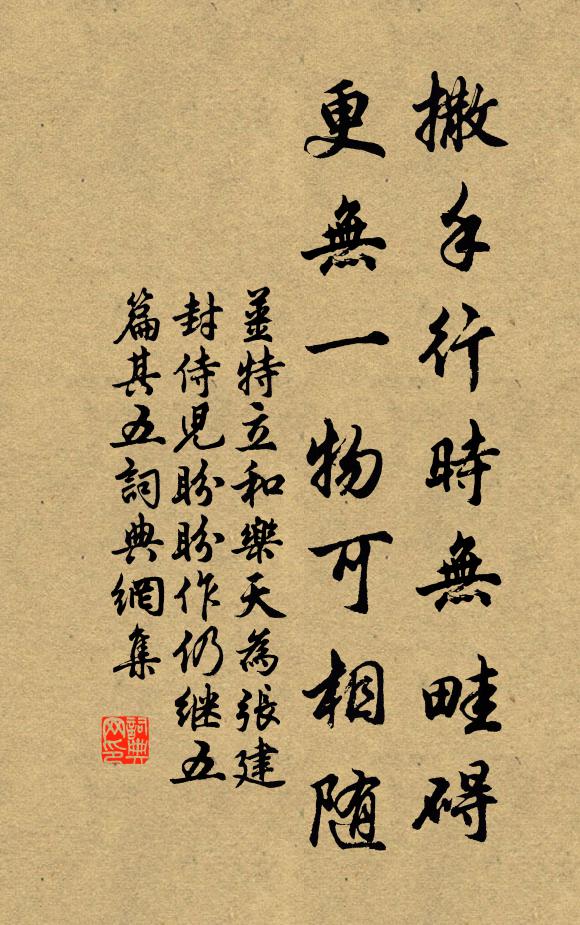 撒手行時無畦碍
更無一物可相随
姜特立和樂天為張建
封侍児盼盼作仍继五
篇其五詞典網集
詞典网印